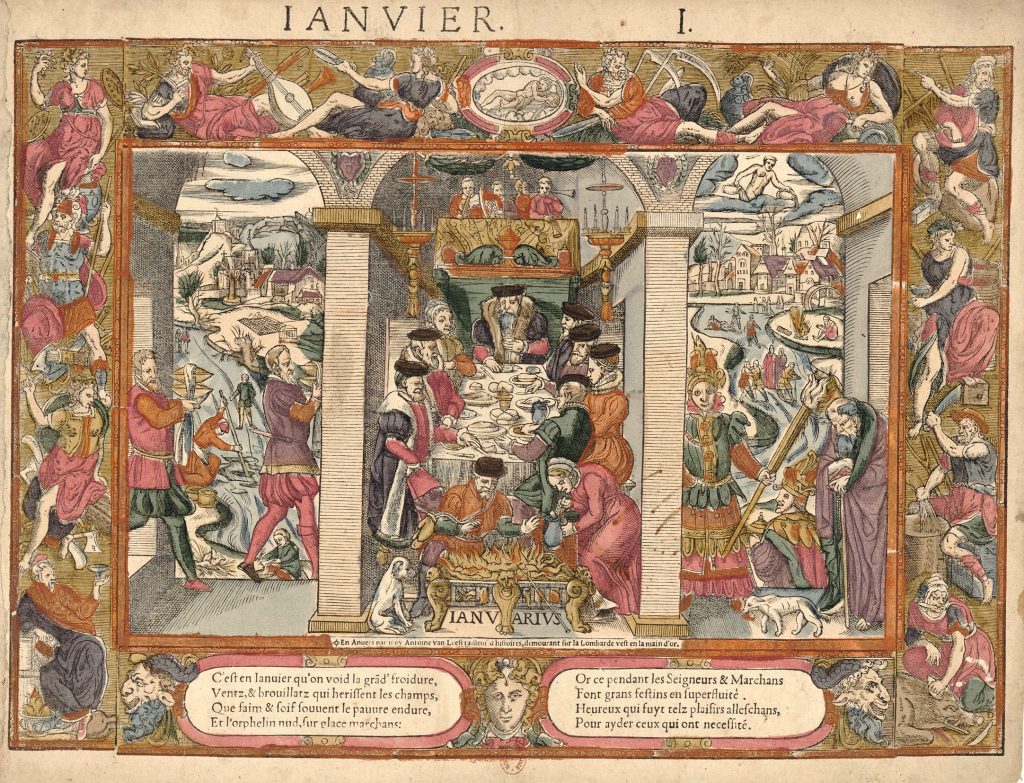 IANVIER. I.
IANVARIVS
En Anvers par moy Antoine van Loest tailleur d'histoires, demourant sur la Lombarde vest en la main d'or.
C'est en Ianuier qu'on void la grãd' froidure,
Ventz, & brouillatz qui herissent les champs,
Que faim & soif souuent le pauure endure,
Et l'orphelin nud, sur glace marchans:
Or ce pendant les Seigneurs & Marchans
Font grans festins en superfluité.
Heureux qui fuyt telz plaisirs alleschans,
Pour ayder ceux qui ont necessité.